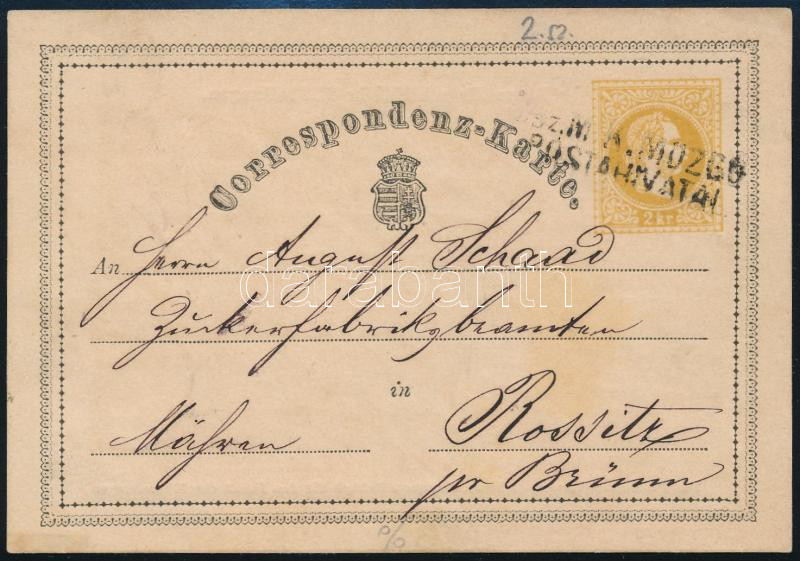 2.52.
Correspondenz-Karte.
M.A. MOZGÓ
POSTAHIVATAL
2 kr.
An Herrn August Schaad
darabanth
Zuckerfabriksbeamten
in
Mähren Rossitz
pr Brünn
p/o